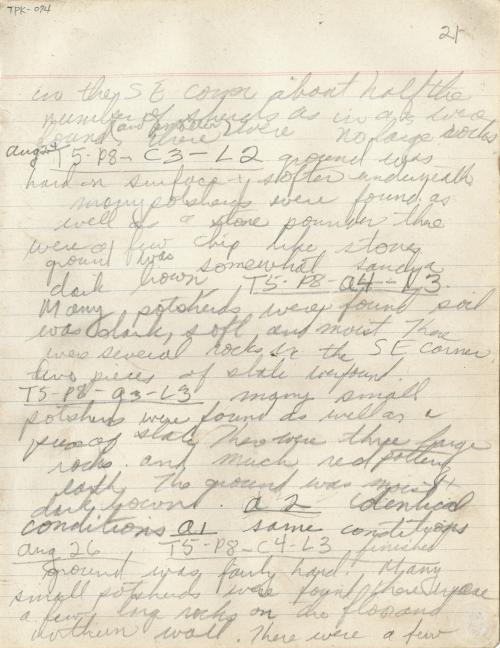 TPK-094
21
in the SE corner about half the
number of sherds as in a3 were
found, and smaller there were no large rocks
Aug 25 T5-P8-C3-L2 ground was
hard on surface & softer underneath
many potsherds were found as
well as a stone pounder there
were a few chip like stones
ground was somewhat sandy &
dark brown. T5-P8-a4-L3.
Many potsherds were found, soil
was dark, soft and moist. There
was several rocks in the SE corner,
two pieces of slate were found.
T5-P8-a3-L3 many small
potsherds were found as well as a
piece of slate. There were three large
rocks and much red pottery
The ground was moist &
dark brown. a2 identical
conditions a1 same conditions
Aug 26, T5-P8-C4-L3 finished
ground was fairly hard. Many
small potsherds were found there were
a few large rocks on the floor and
northern wall. There were a few